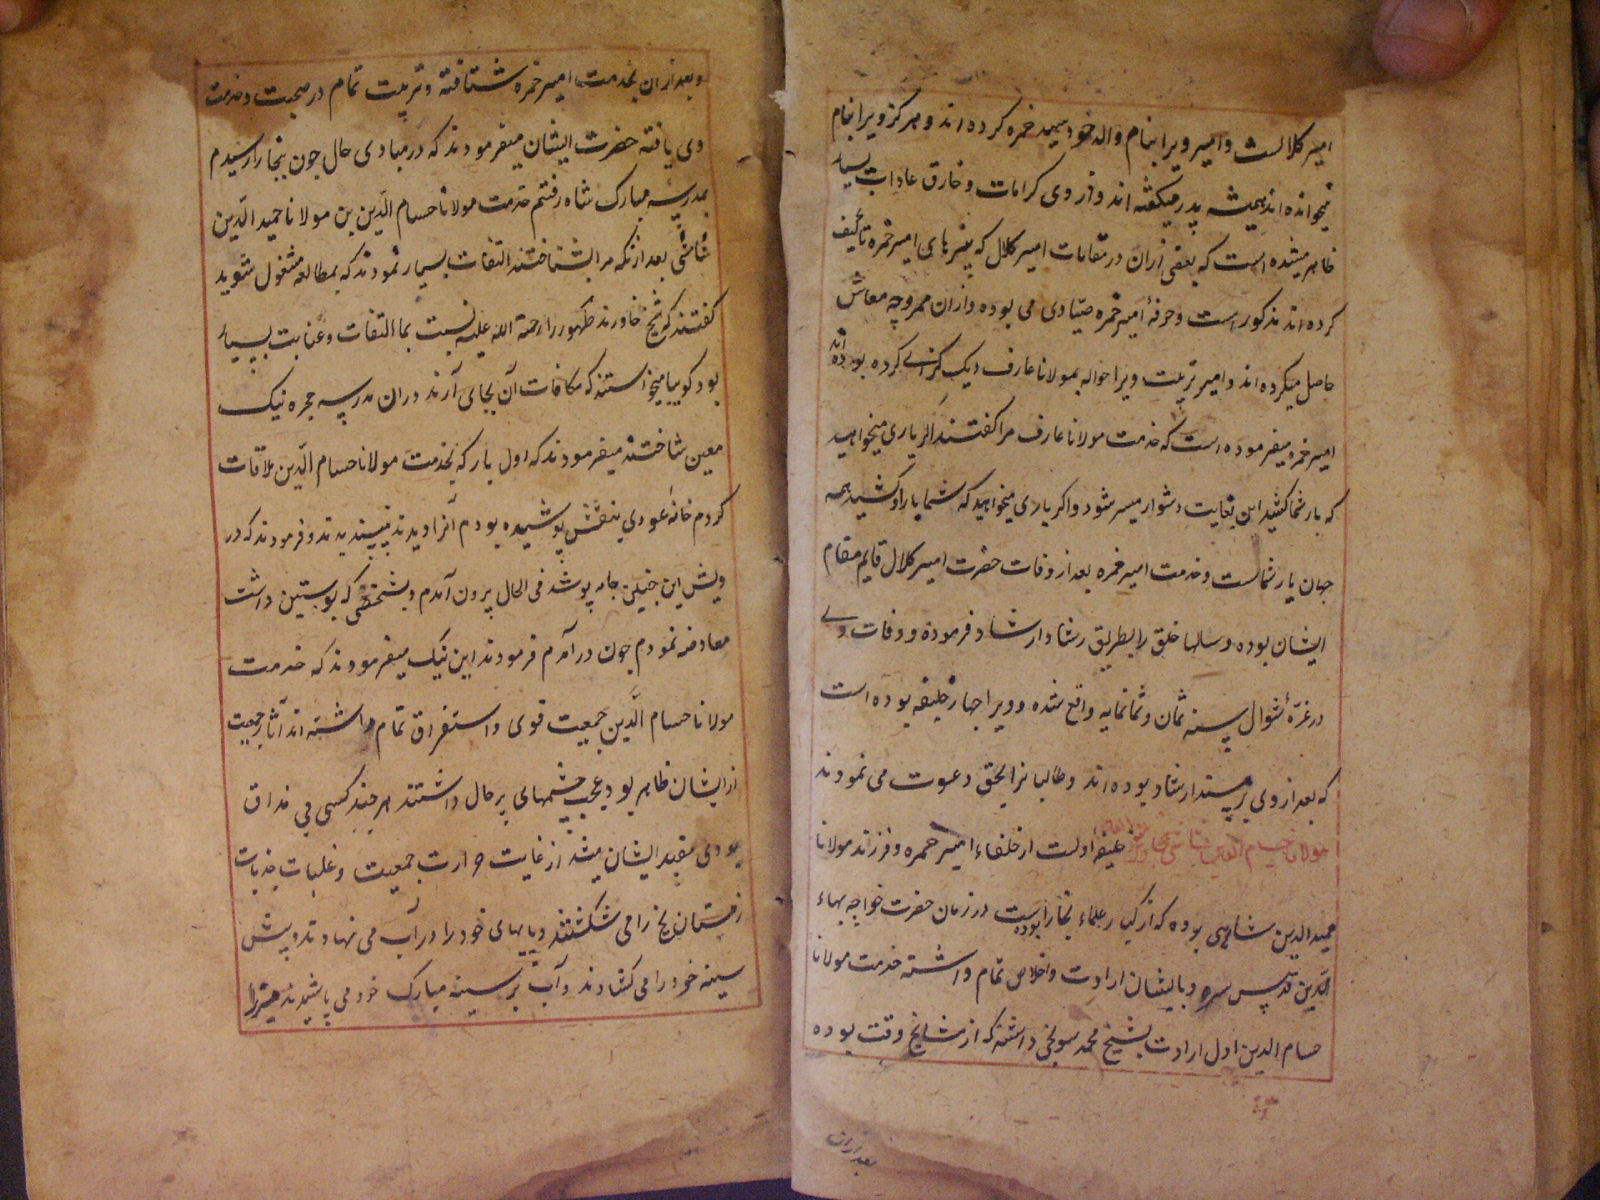 امیر کلالست و امیر ویرا بنام والد خود سید حمزه کرده اند و هرگز ویرا بنام
نمیخوانده اند همیشه پدر میگفته اند و از وی کرامات و خارق عادات بسیار
ظاهر میشده است که بعضی از آن در مقامات امیر کلال که پسرهای امیر حمزه تألیف
کرده اند مذکور است و حرفهٔ امیر حمزه صیادی می بوده و از آن ممر وجه معاش
حاصل میکرده اند و امیر تربیت ویرا حواله بمولانا عارف دیک کرانی کرده بوده اند
امیر حمزه میفرموده است که خدمت مولانا عارف مرا گفتند اگر یاری میخواهید
که بار شما کشد این بغایت دشوار میسر شود و اگر یاری میخواهید که شما بار او کشید همه
جهان یار شماست و خدمت امیر حمزه بعد از وفات حضرت امیر کلال قایم مقام
ایشان بوده و سالها خلق را بطریق رشاد ارشاد فرموده و وفات وی
در غرّهٔ شوال سنه ثمان و ثمانمایه واقع شده و ویرا چهار خلیفه بوده است
که بعد از وی بر مسند ارشاد بوده اند و طالبانرا بحق دعوت می نمودند
مولانا حسام الدین شاشی بخاری رحمه الله خلیفهٔ اولست از خلفاء امیر حمزه و فرزند مولانا
حمید الدین شاشی بوده که از کبار علماء بخارا بوده است در زمان حضرت خواجه بهاء
الدین قدس سره و بایشان ارادت و اخلاص تمام داشته خدمت مولانا
حسام الدین اول ارادت بشیخ محمد سونجی داشته که از مشایخ وقت بوده
بعد ازان
و بعد از ان بخدمت امیر حمزه شتافته و تربیت تمام در صحبت و خدمت
وی یافته حضرت ایشان میفرمودند که در مبادی حال چون ببخارا رسیدم
بمدرسه مبارک شاه رفتم خدمت مولانا حسام الدین بن مولانا حمید الدین
شاشی بعد از آنکه مرا بشناختند التفات بسیار نمودند که بمطالعه مشغول شوید
گفتند که شیخ خاوند طهور را رحمة الله علیه نسبت بما التفات و عنایت بسیار
بود گوییا میخواستند که مکافات آن بجای آرند در ان مدرسه حجره نیک
معین ساختند میفرمودند که اول بار که بخدمت مولانا حسام الدین ملاقات
کردم خانهٔ عودی بنفش پوشیده بودم آنرا دیدند نپسندیدند و فرمودند که در
ویش این چنین جامه پوشد فی الحال بیرون آمدم و بشخصی که پوستین داشت
معاوضه نمودم چون در آمدم فرمودند این نیک میفرمودند که خدمت
مولانا حسام الدین جمعیت قوی و استغراق تمام داشته اند آثار جمعیت
از ایشان ظاهر بود و عجب چشمهای پر حال داشتند هر چند کسی بی مذاق
بودی مقید ایشان میشد از غایت حرارت جمعیت و غلبات جذبات
زمستان یخ را می شکستند و پایهای خود را در آب می نهادند و پیش
سینه خود را می گشادند و آب بر سینه مبارک خود می پاشیدند میرزا